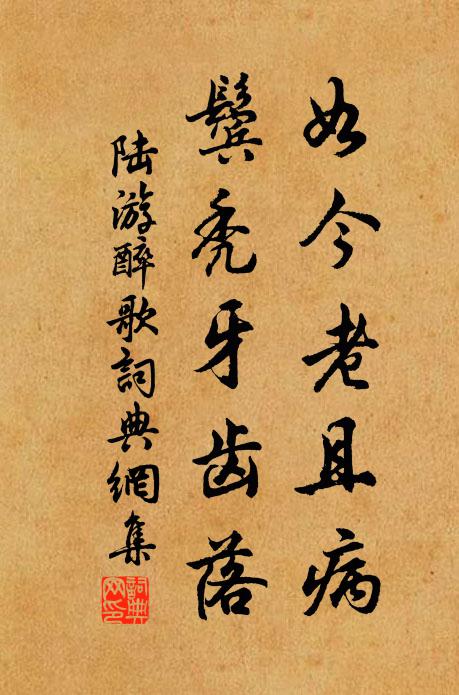 如今老且病
鬓秃牙齿落
陆游醉歌詞典網集
詞典
网印